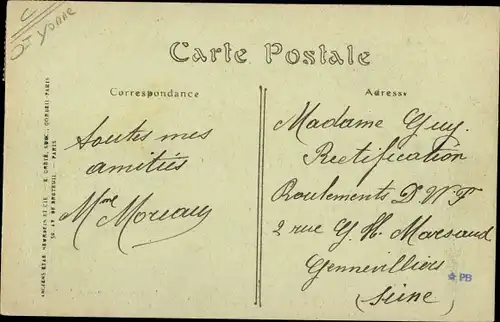 St Yonne
Carte Postale
Correspondance
Adresse
Toutes mes
amitiés
Mme Moreau
Madame Guy.
Rectification
Roulements D.W.F
2 rue G. H. Marsaud
Gennevilliers
(Seine)
PB